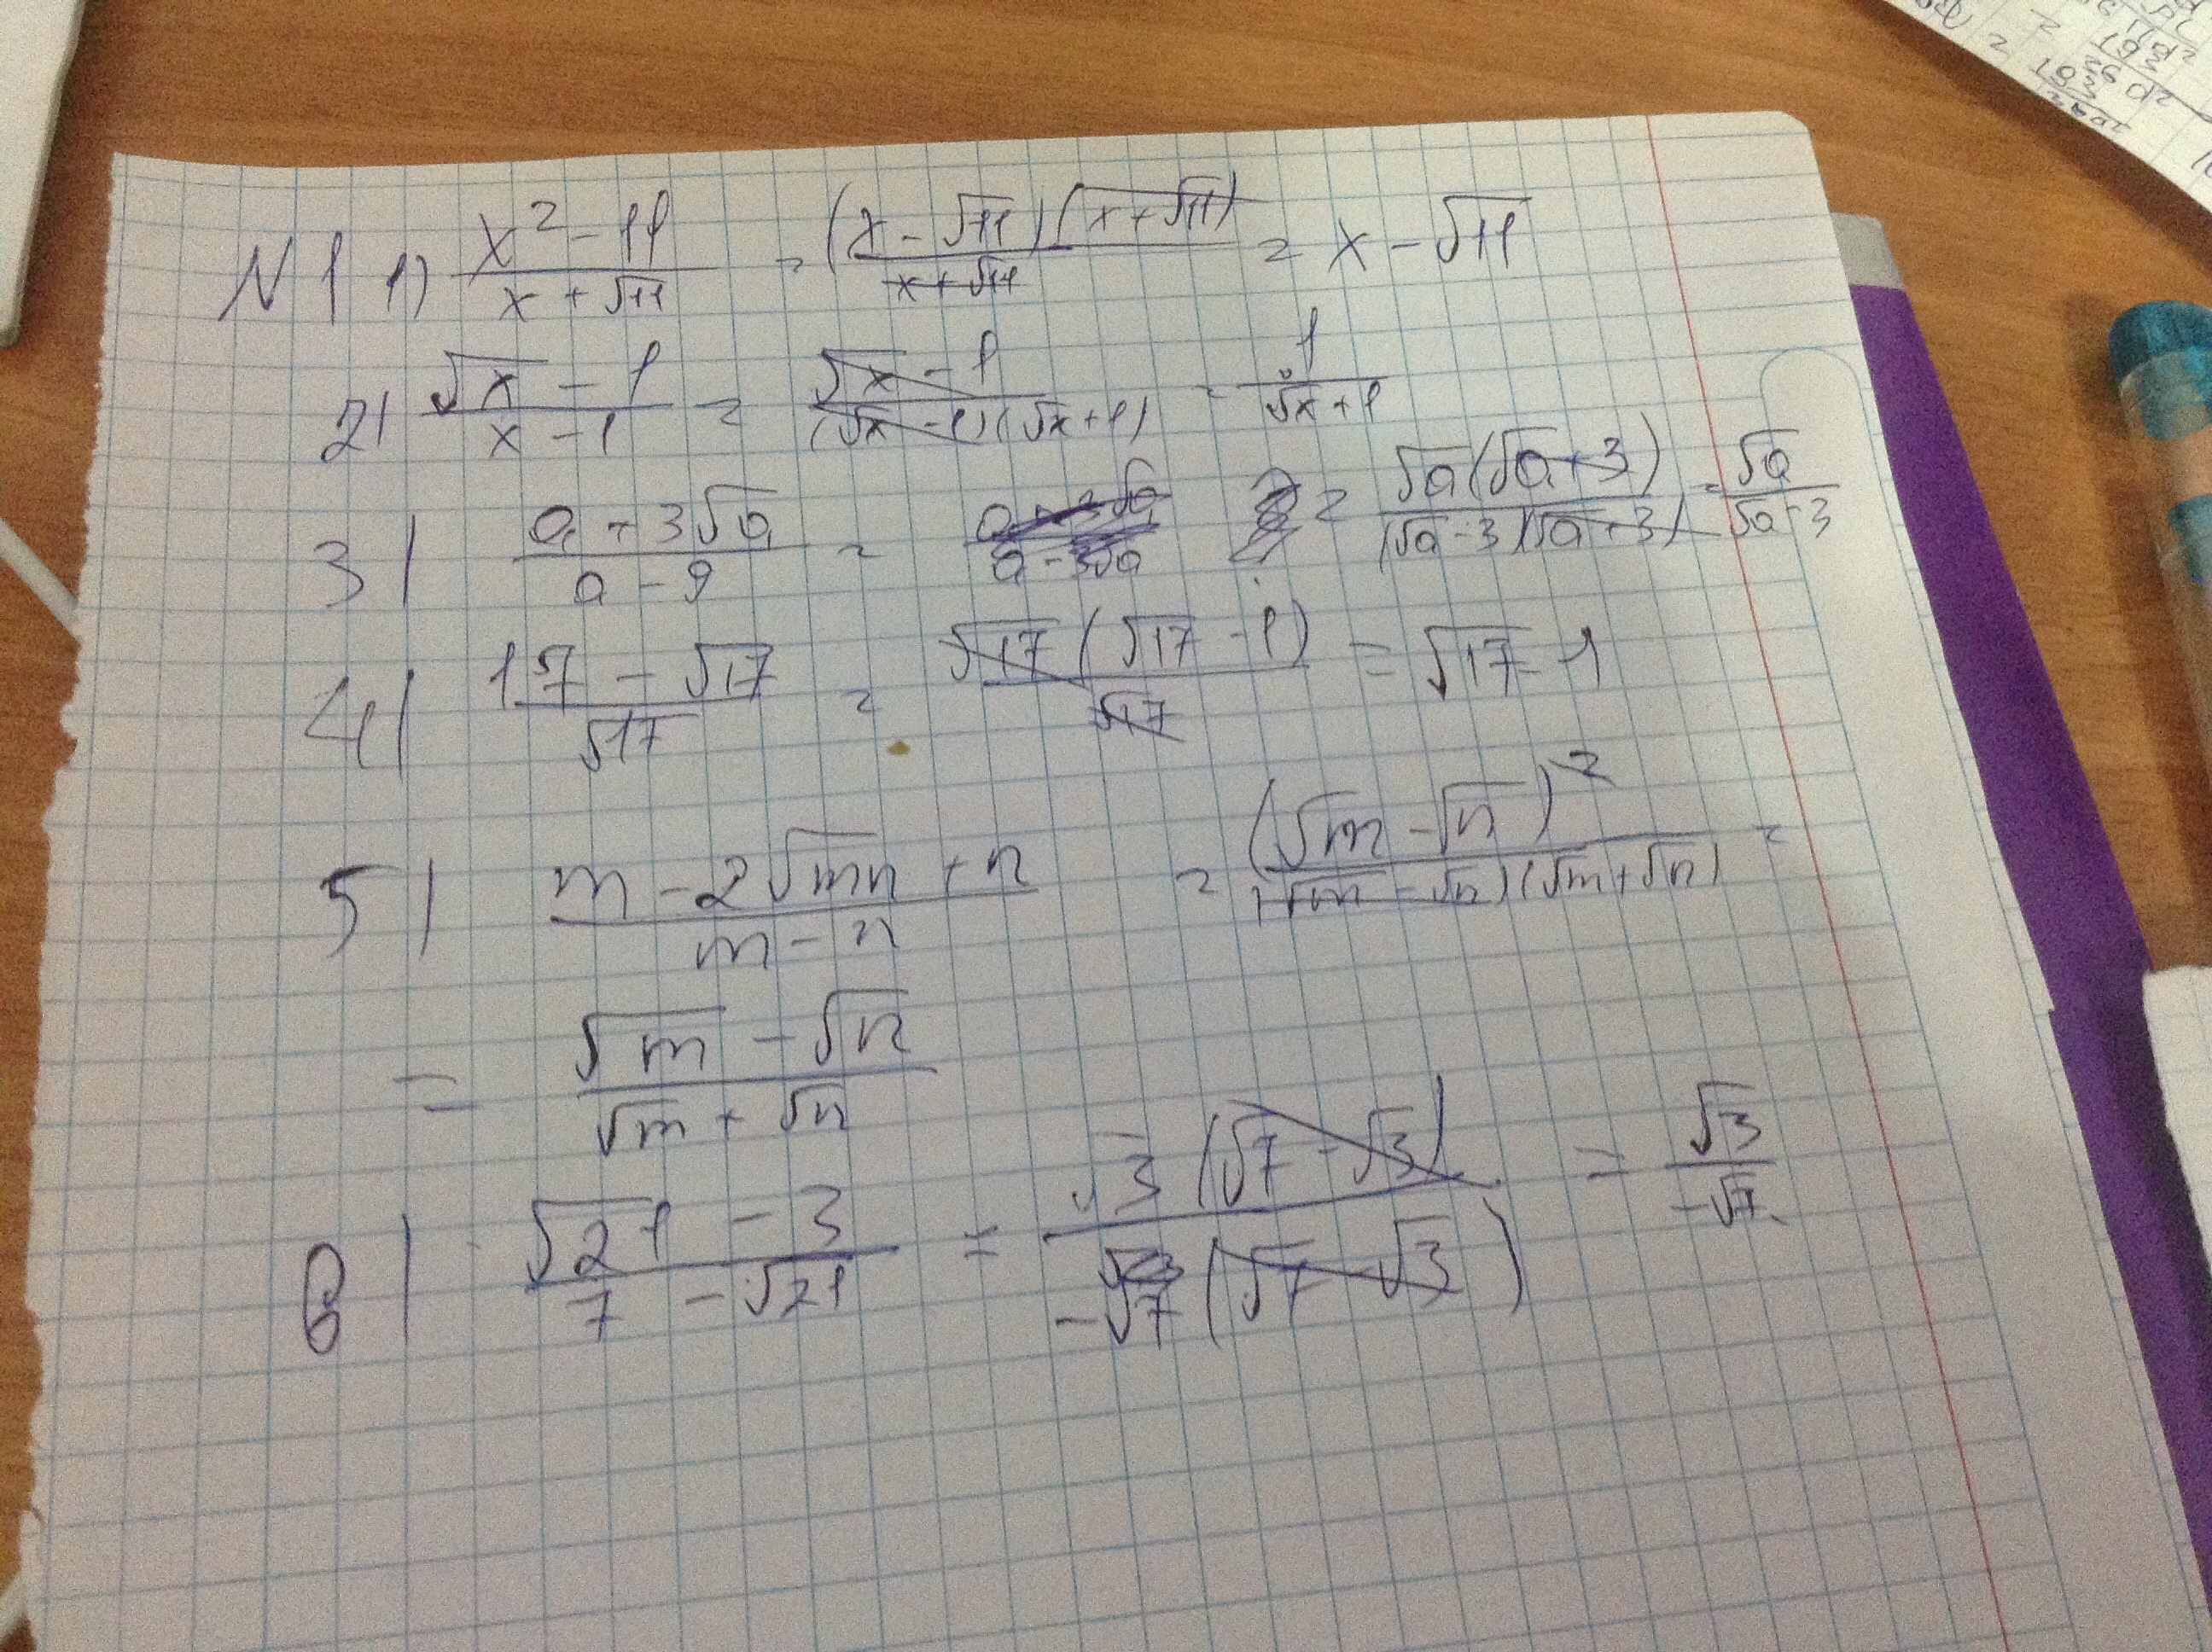 N 1 1) (x² - 11)/(x + √11) = ((x - √11)(x + √11))/(x + √11) = x - √11
2) (√x - 1)/(x - 1) = (√x - 1)/((√x - 1)(√x + 1)) = 1/(√x + 1)
3) (a + 3√a)/(a - 9) = = (√a(√a + 3))/((√a - 3)(√a + 3)) = √a/(√a - 3)
4) (17 - √17)/√17 = (√17(√17 - 1))/√17 = √17 - 1
5) (m - 2√mn + n)/(m - n) = (√m - √n)²/((√m - √n)(√m + √n)) =
= (√m - √n)/(√m + √n)
6) (√21 - 3)/(7 - √21) = (√3(√7 - √3))/(-√7(√7 - √3)) = √3/(-√7)